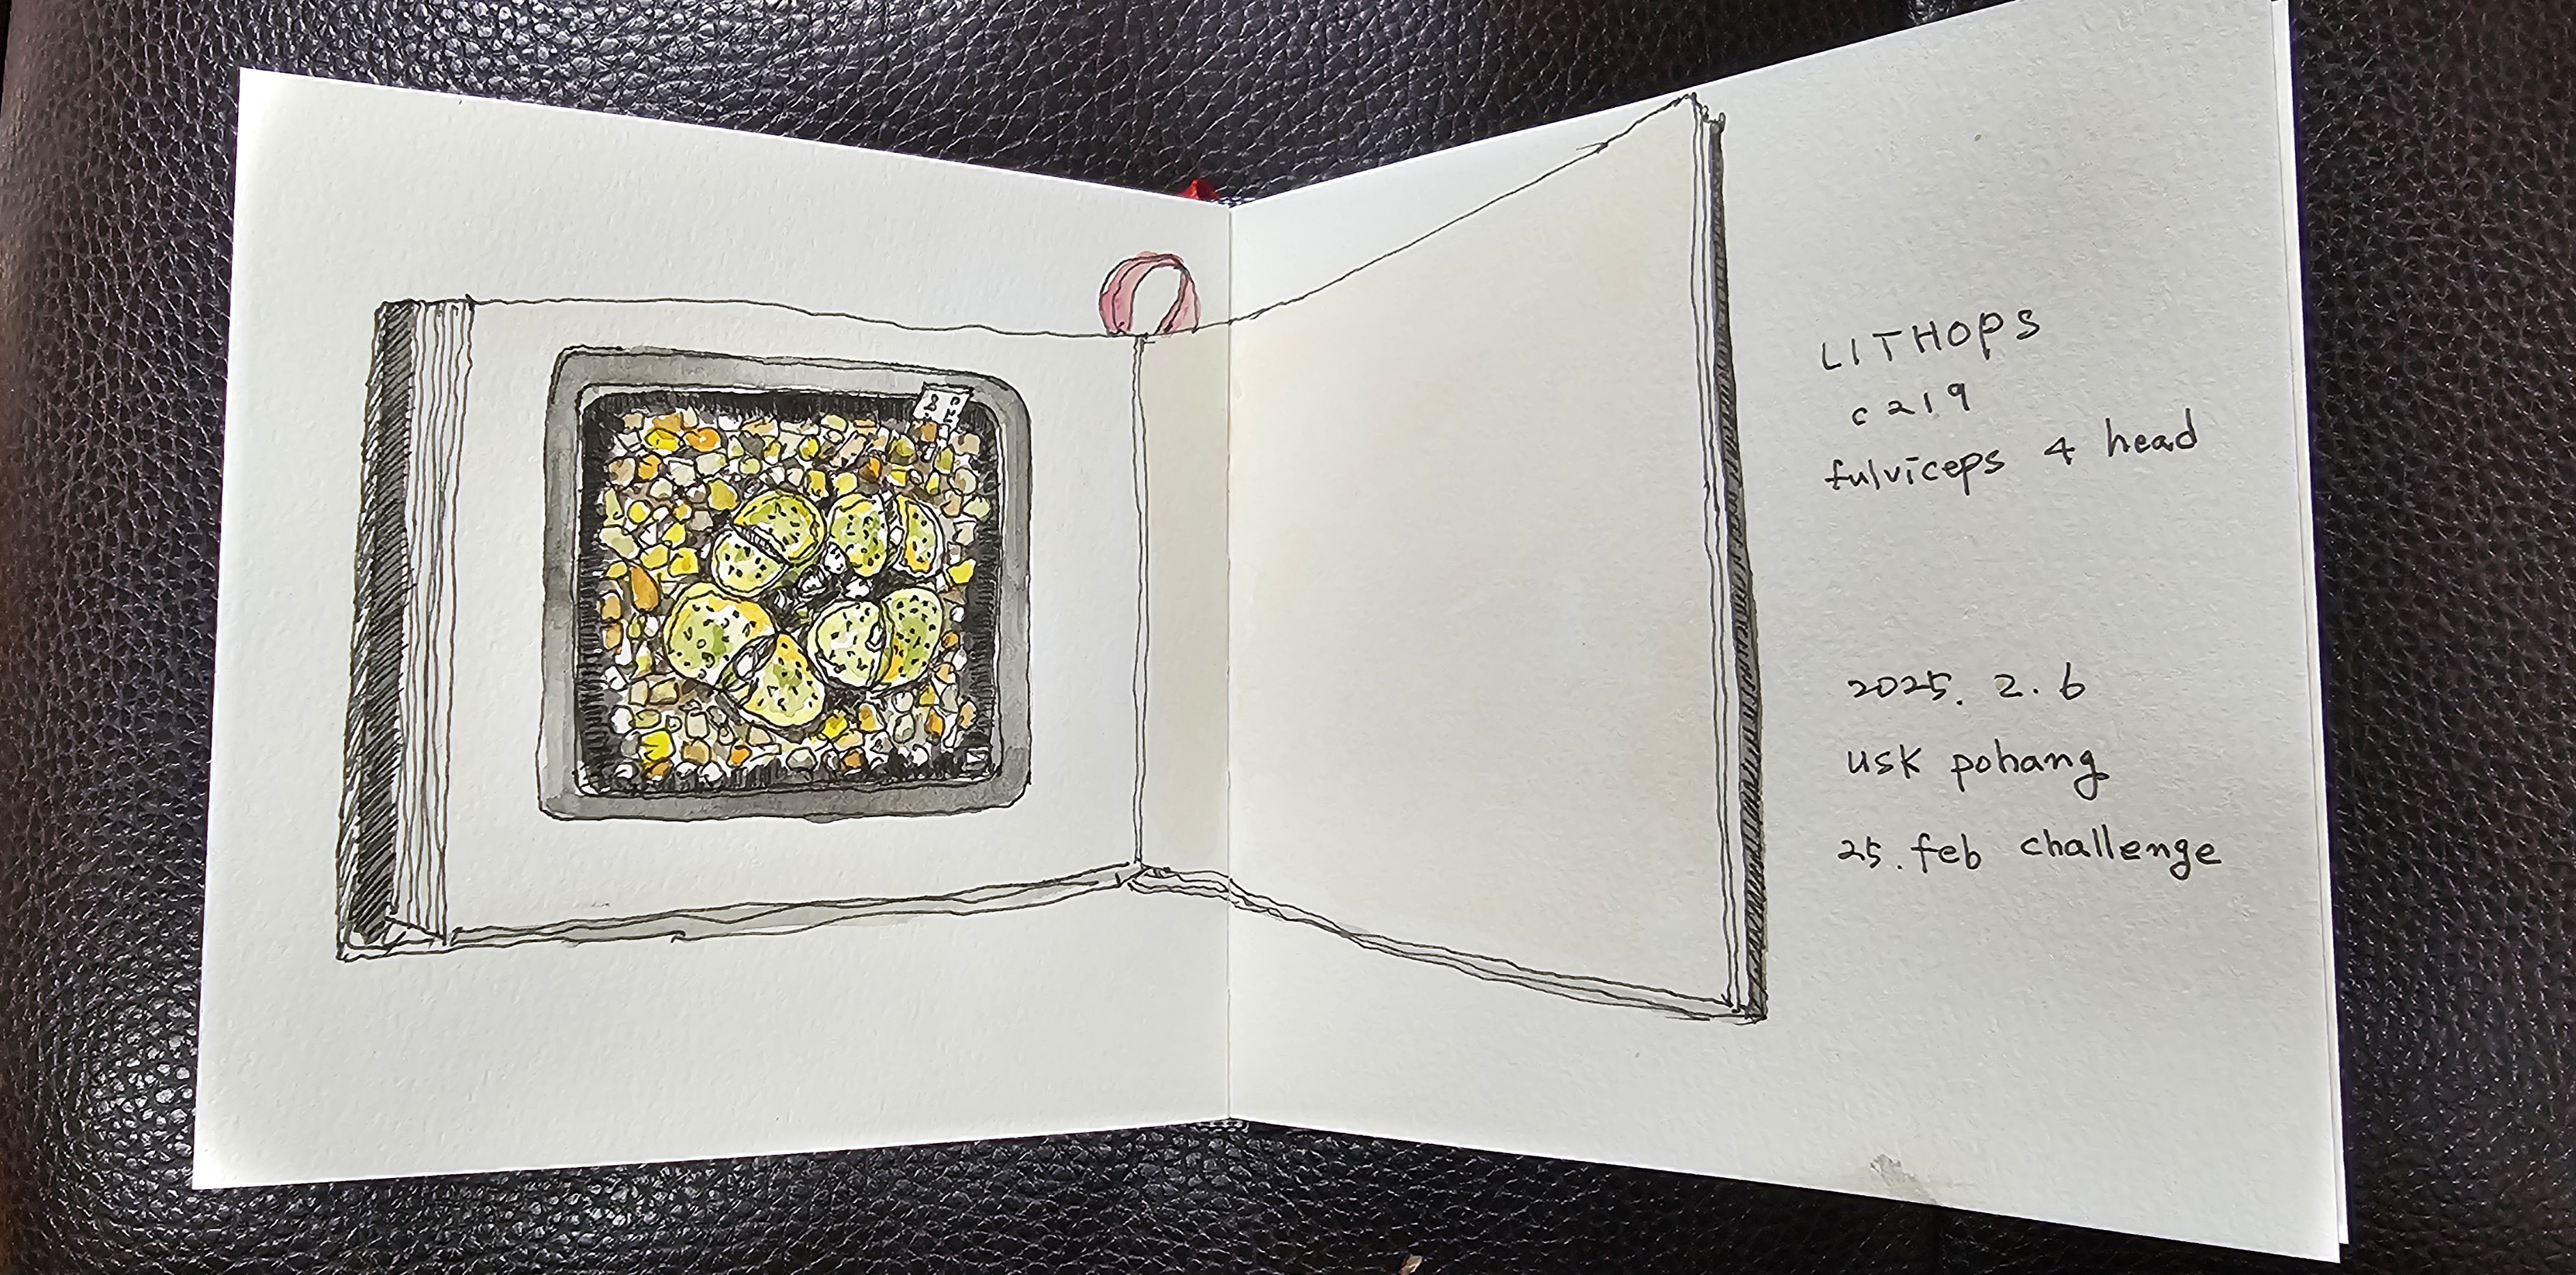 LITHOPS
c219
fulviceps 4 head
2025. 2. 6
USK pohang
25. feb challenge